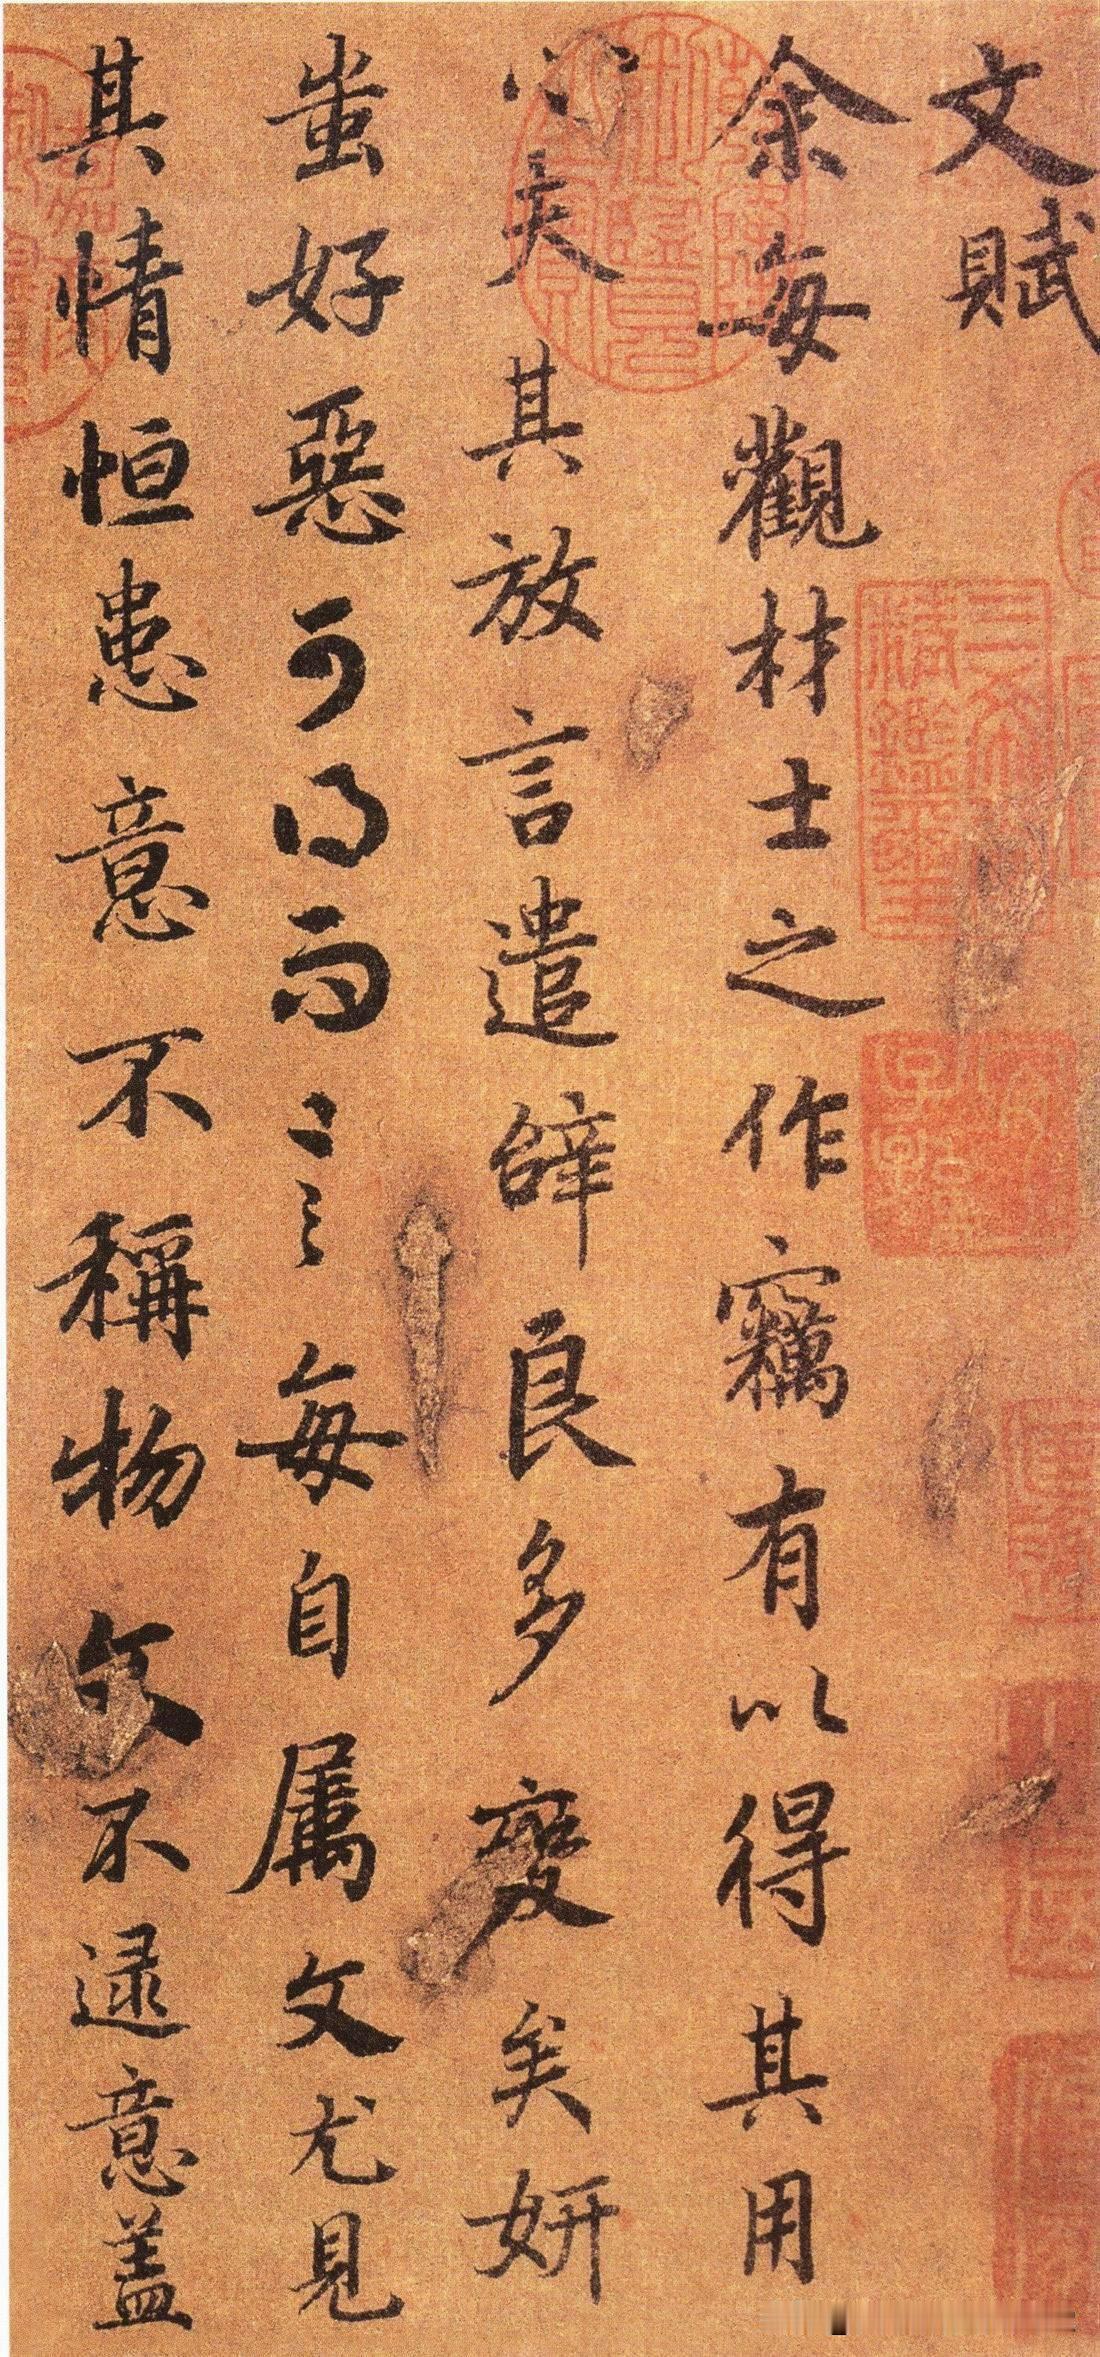 文賦
余每觀材士之作竊有以得其用
心夫其放言遣辭良多變矣妍
蚩好惡可得而言每自屬文尤見
其情恒患意不稱物文不逮意蓋
三希堂精鑑璽
宜子孫